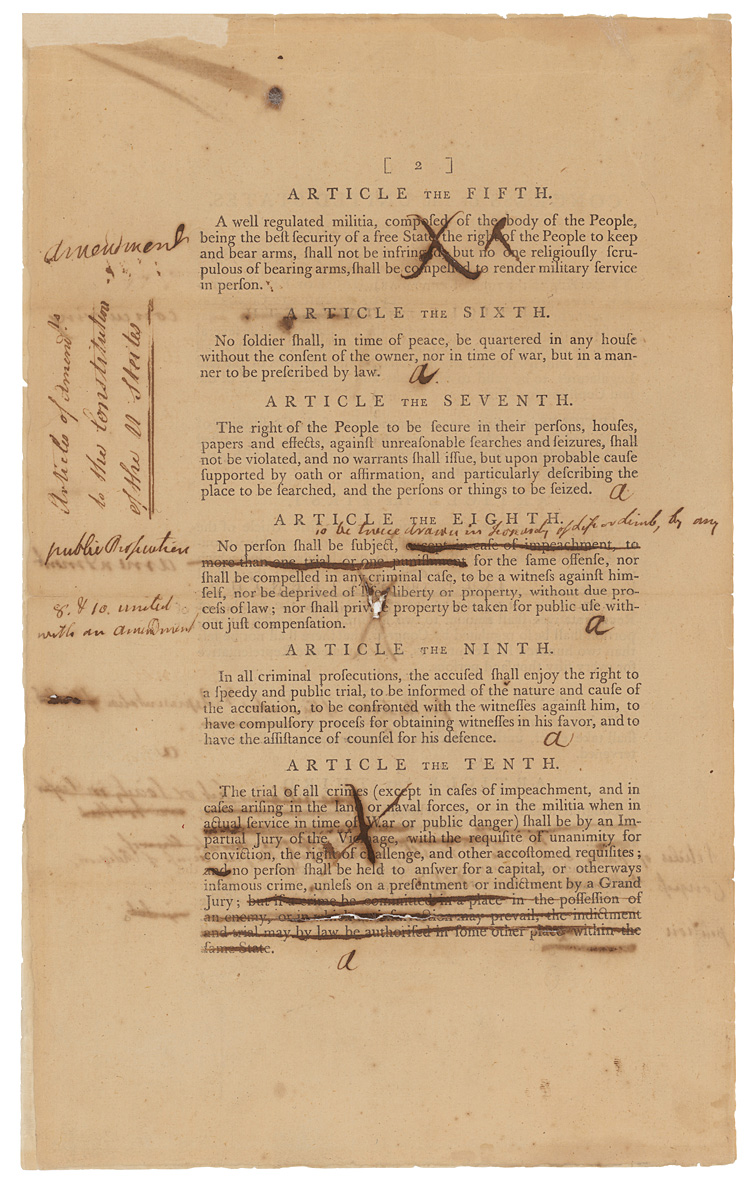 [ 2 ]
ARTICLE THE FIFTH.
A well regulated militia, compoſed of the body of the People,
being the beſt ſecurity of a free State, the right of the People to keep
and bear arms, ſhall not be infringed, but no one religiouſly ſcru-
pulous of bearing arms, ſhall be compelled to render military ſervice
in perſon.
amendment
ARTICLE THE SIXTH.
No ſoldier ſhall, in time of peace, be quartered in any houſe
without the conſent of the owner, nor in time of war, but in a man-
ner to be preſcribed by law. a
Articles of Amend.ts
to the Constitution
of the U States
ARTICLE THE SEVENTH.
The right of the People to be ſecure in their perſons, houſes,
papers and effects, againſt unreaſonable ſearches and ſeizures, ſhall
not be violated, and no warrants ſhall iſſue, but upon probable cauſe
ſupported by oath or affirmation, and particularly deſcribing the
place to be ſearched, and the perſons or things to be ſeized. a
ARTICLE THE EIGHTH.
to be twice drawn in jeopardy of life or limb, by any
public Prosecution
No perſon ſhall be ſubject, except in caſe of impeachment, to
more than one trial or one puniſhment for the ſame offenſe, nor
ſhall be compelled in any criminal caſe, to be a witneſs againſt him-
ſelf, nor be deprived of life, liberty or property, without due pro-
ceſs of law; nor ſhall private property be taken for public uſe with-
out juſt compenſation. a
8. & 10. united
with an amendment
ARTICLE THE NINTH.
In all criminal proſecutions, the accuſed ſhall enjoy the right to
a ſpeedy and public trial, to be informed of the nature and cauſe of
the accuſation, to be confronted with the witneſſes againſt him, to
have compulſory proceſs for obtaining witneſſes in his favor, and to
have the aſſiſtance of counſel for his defence. a
ARTICLE THE TENTH.
The trial of all crimes (except in caſes of impeachment, and in
caſes ariſing in the land or naval forces, or in the militia when in
actual ſervice in time of War or public danger) ſhall be by an Im-
partial Jury of the Vicinage, with the requiſite of unanimity for
conviction, the right of challenge, and other accoſtomed requiſites;
and no perſon ſhall be held to anſwer for a capital, or otherways
infamous crime, unleſs on a preſentment or indictment by a Grand
Jury; but if a crime be committed in a place in the poſſeſſion of
an enemy, or in which an inſurrection may prevail, the indictment
and trial may by law be authoriſed in ſome other place within the
ſame State.
a